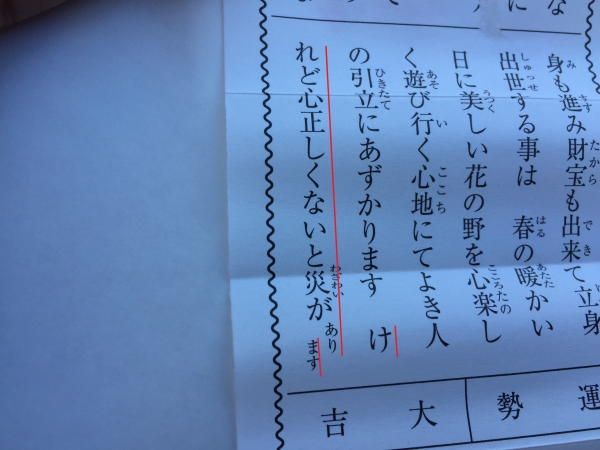 身も進み財宝も出来て立身
出世する事は　春の暖かい
日に美しい花の野を心楽し
く遊び行く心地にてよき人
の引立にあずかります　け
れど心正しくないと災があります
運勢　大吉